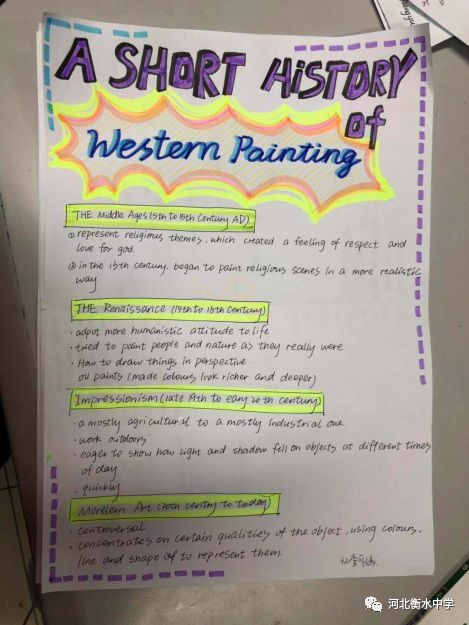 A SHORT HISTORY
of
Western Painting
THE Middle Ages (5th to 15th Century AD)
① represent religious themes. which created a feeling of respect and
love for god.
② in the 13th century. began to paint religious scenes in a more realistic
way
THE Renaissance (15th to 16th Century)
· adput more humanistic attitude to life
· tried to paint people and nature as they really were
· How to draw things in perspective
· oil paints (made colours look richer and deeper)
Impressionism (late 19th to eary 20th century)
· a mostly agricultural to a mostly industrial one.
· work outdoors
· eager to show how light and shadow fell on objects at different times
of day
· quickly
Morelern Art (20th centry to today)
· controversal
· concentrates on certain qualities of the object. using colours.
line and shape of to represent them.
河北衡水中学